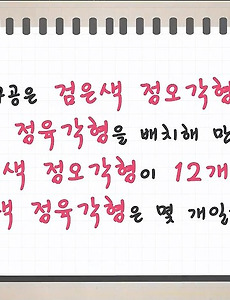 구공은 검은색 정오각형
정육각형을 배치해 만
색 정오각형이 12개
색 정육각형은 몇 개일